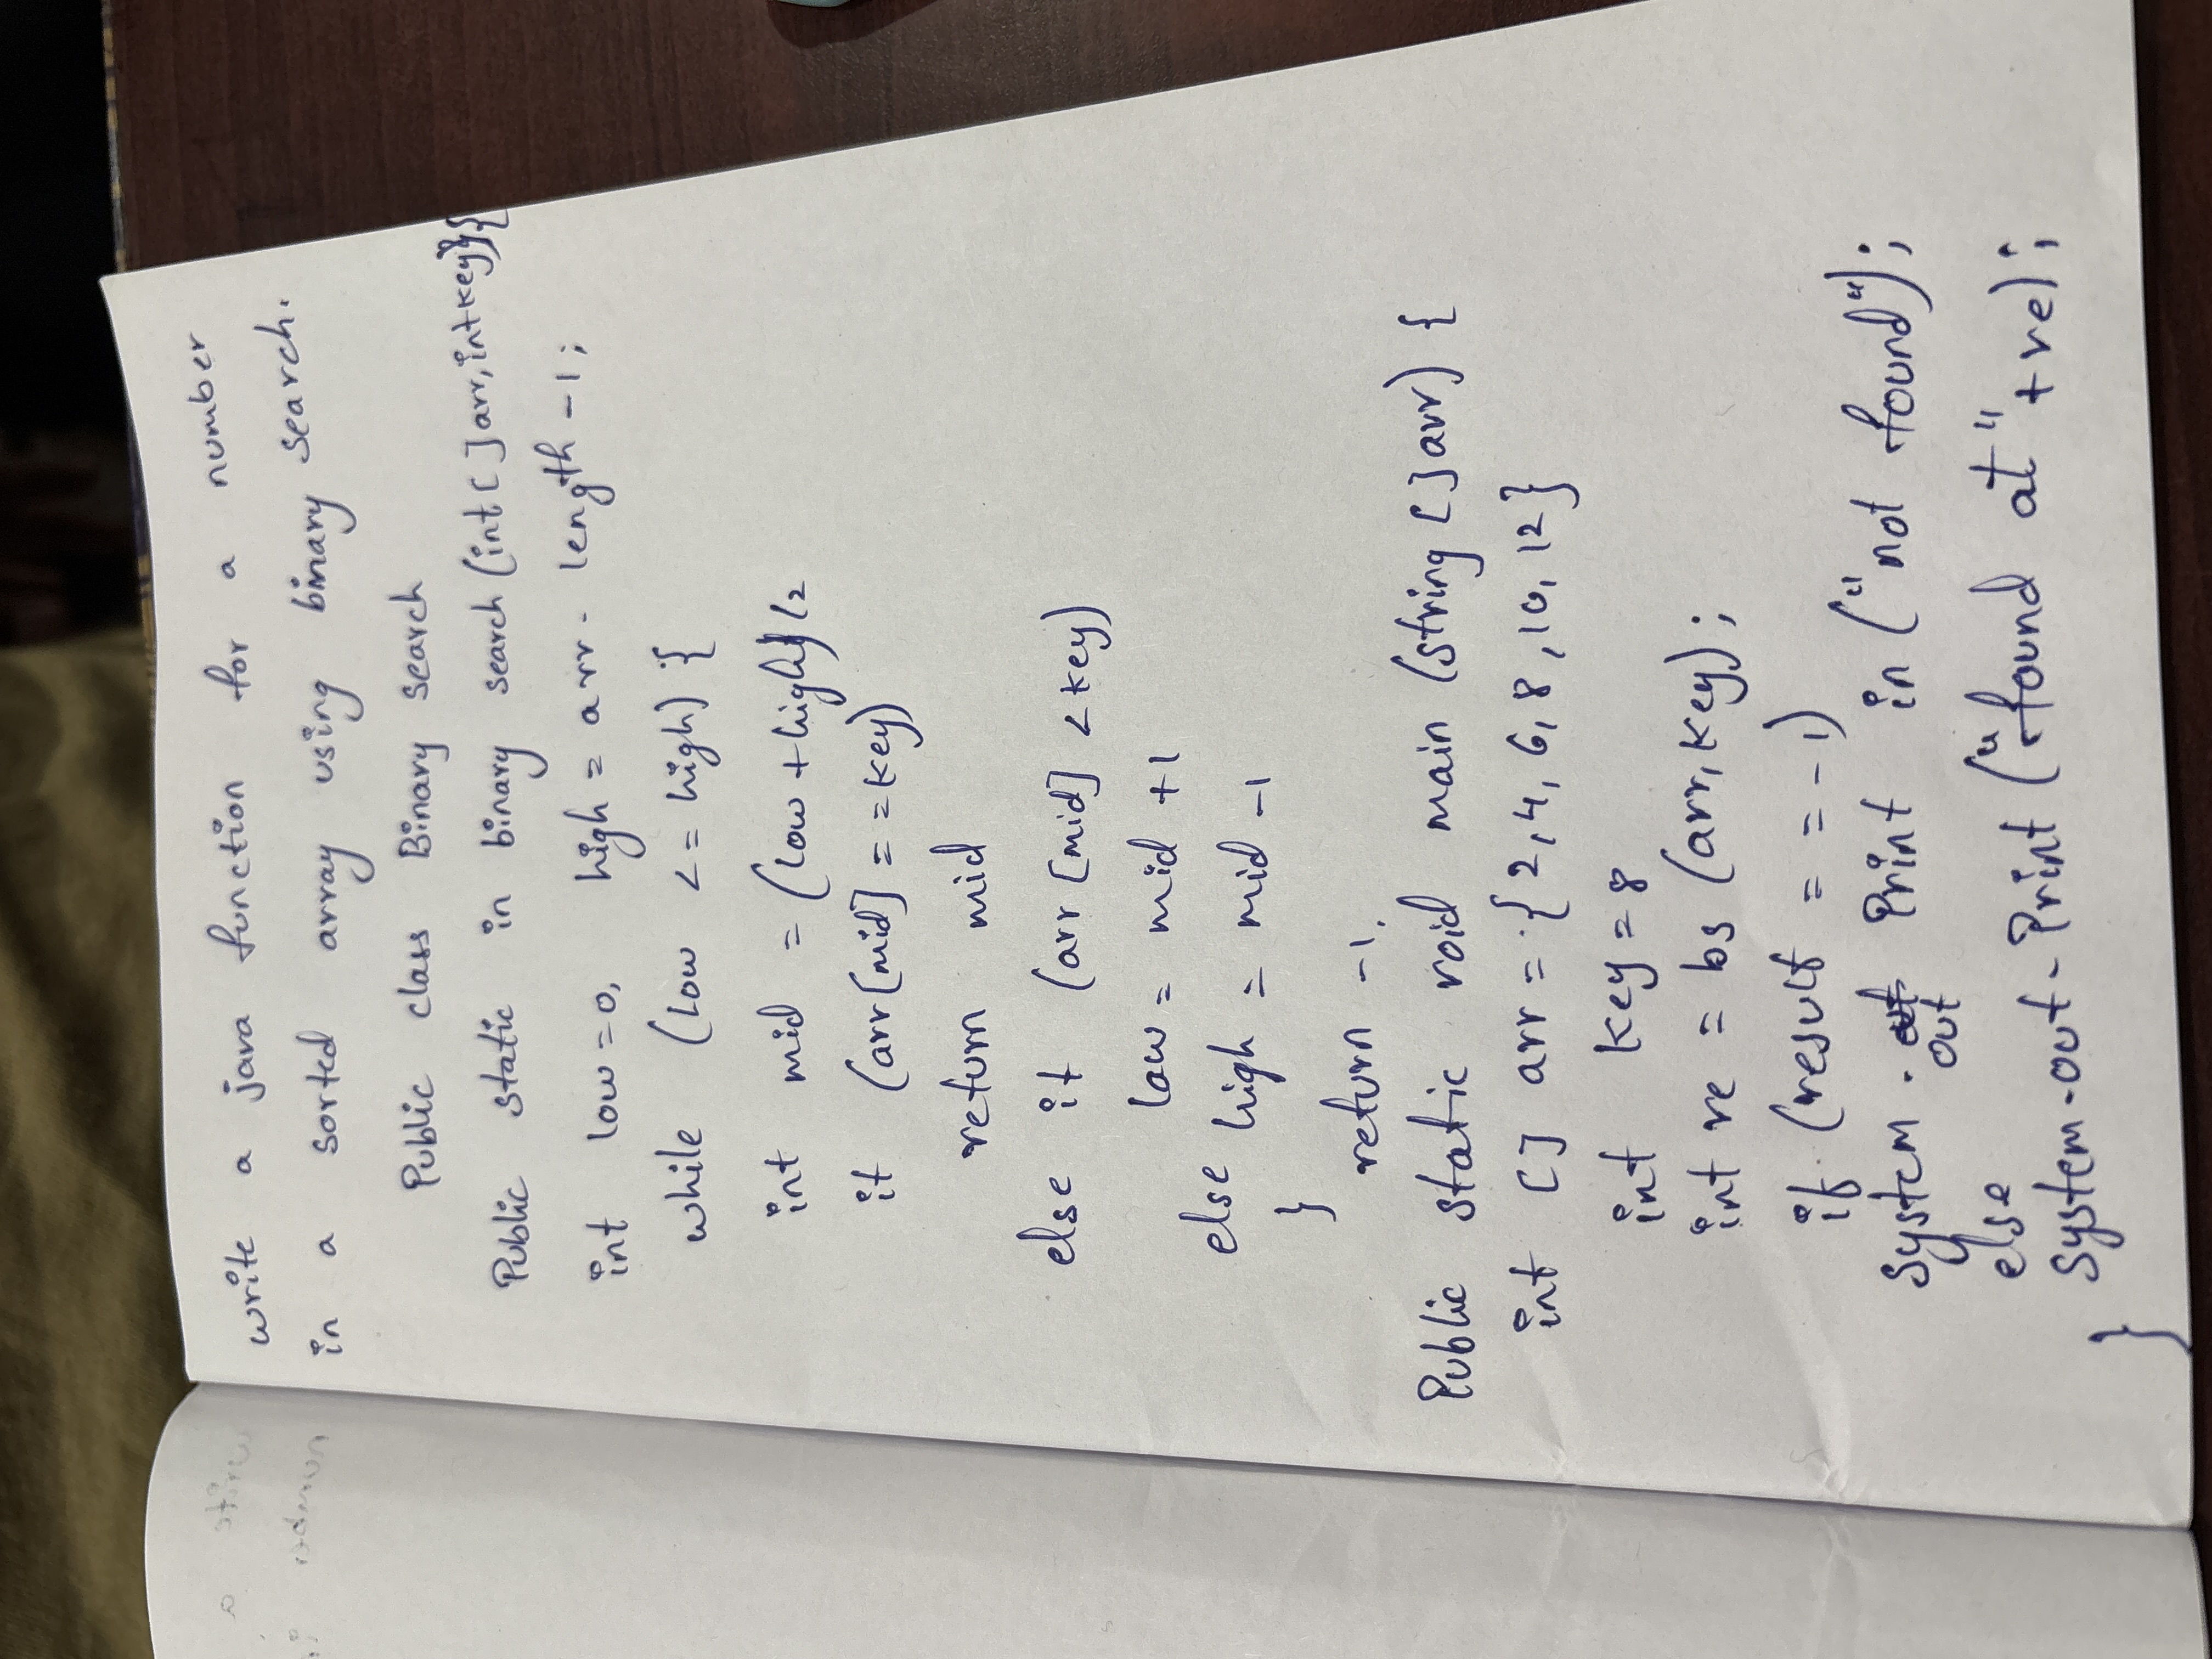 write a java function for a number
in a sorted array using binary search.
Public class Binary search
Public static in binary search (int [ ] arr, int key) {
int low = 0, high = arr. length -1;
while (low <= high) {
int mid = (low + high) /2
if (arr[mid] = = key)
return mid
else if (arr [mid] < key)
low = mid +1
else high = mid -1
}
return -1,
Public static void main (string [ ] arr) {
int [ ] arr = {2, 4, 6, 8, 10, 12}
int key = 8
int re = bs (arr, key);
if (result = = -1)
System . out Print in ("not found");
else
System.out.Print ("found at" + re);
}
write a
number in